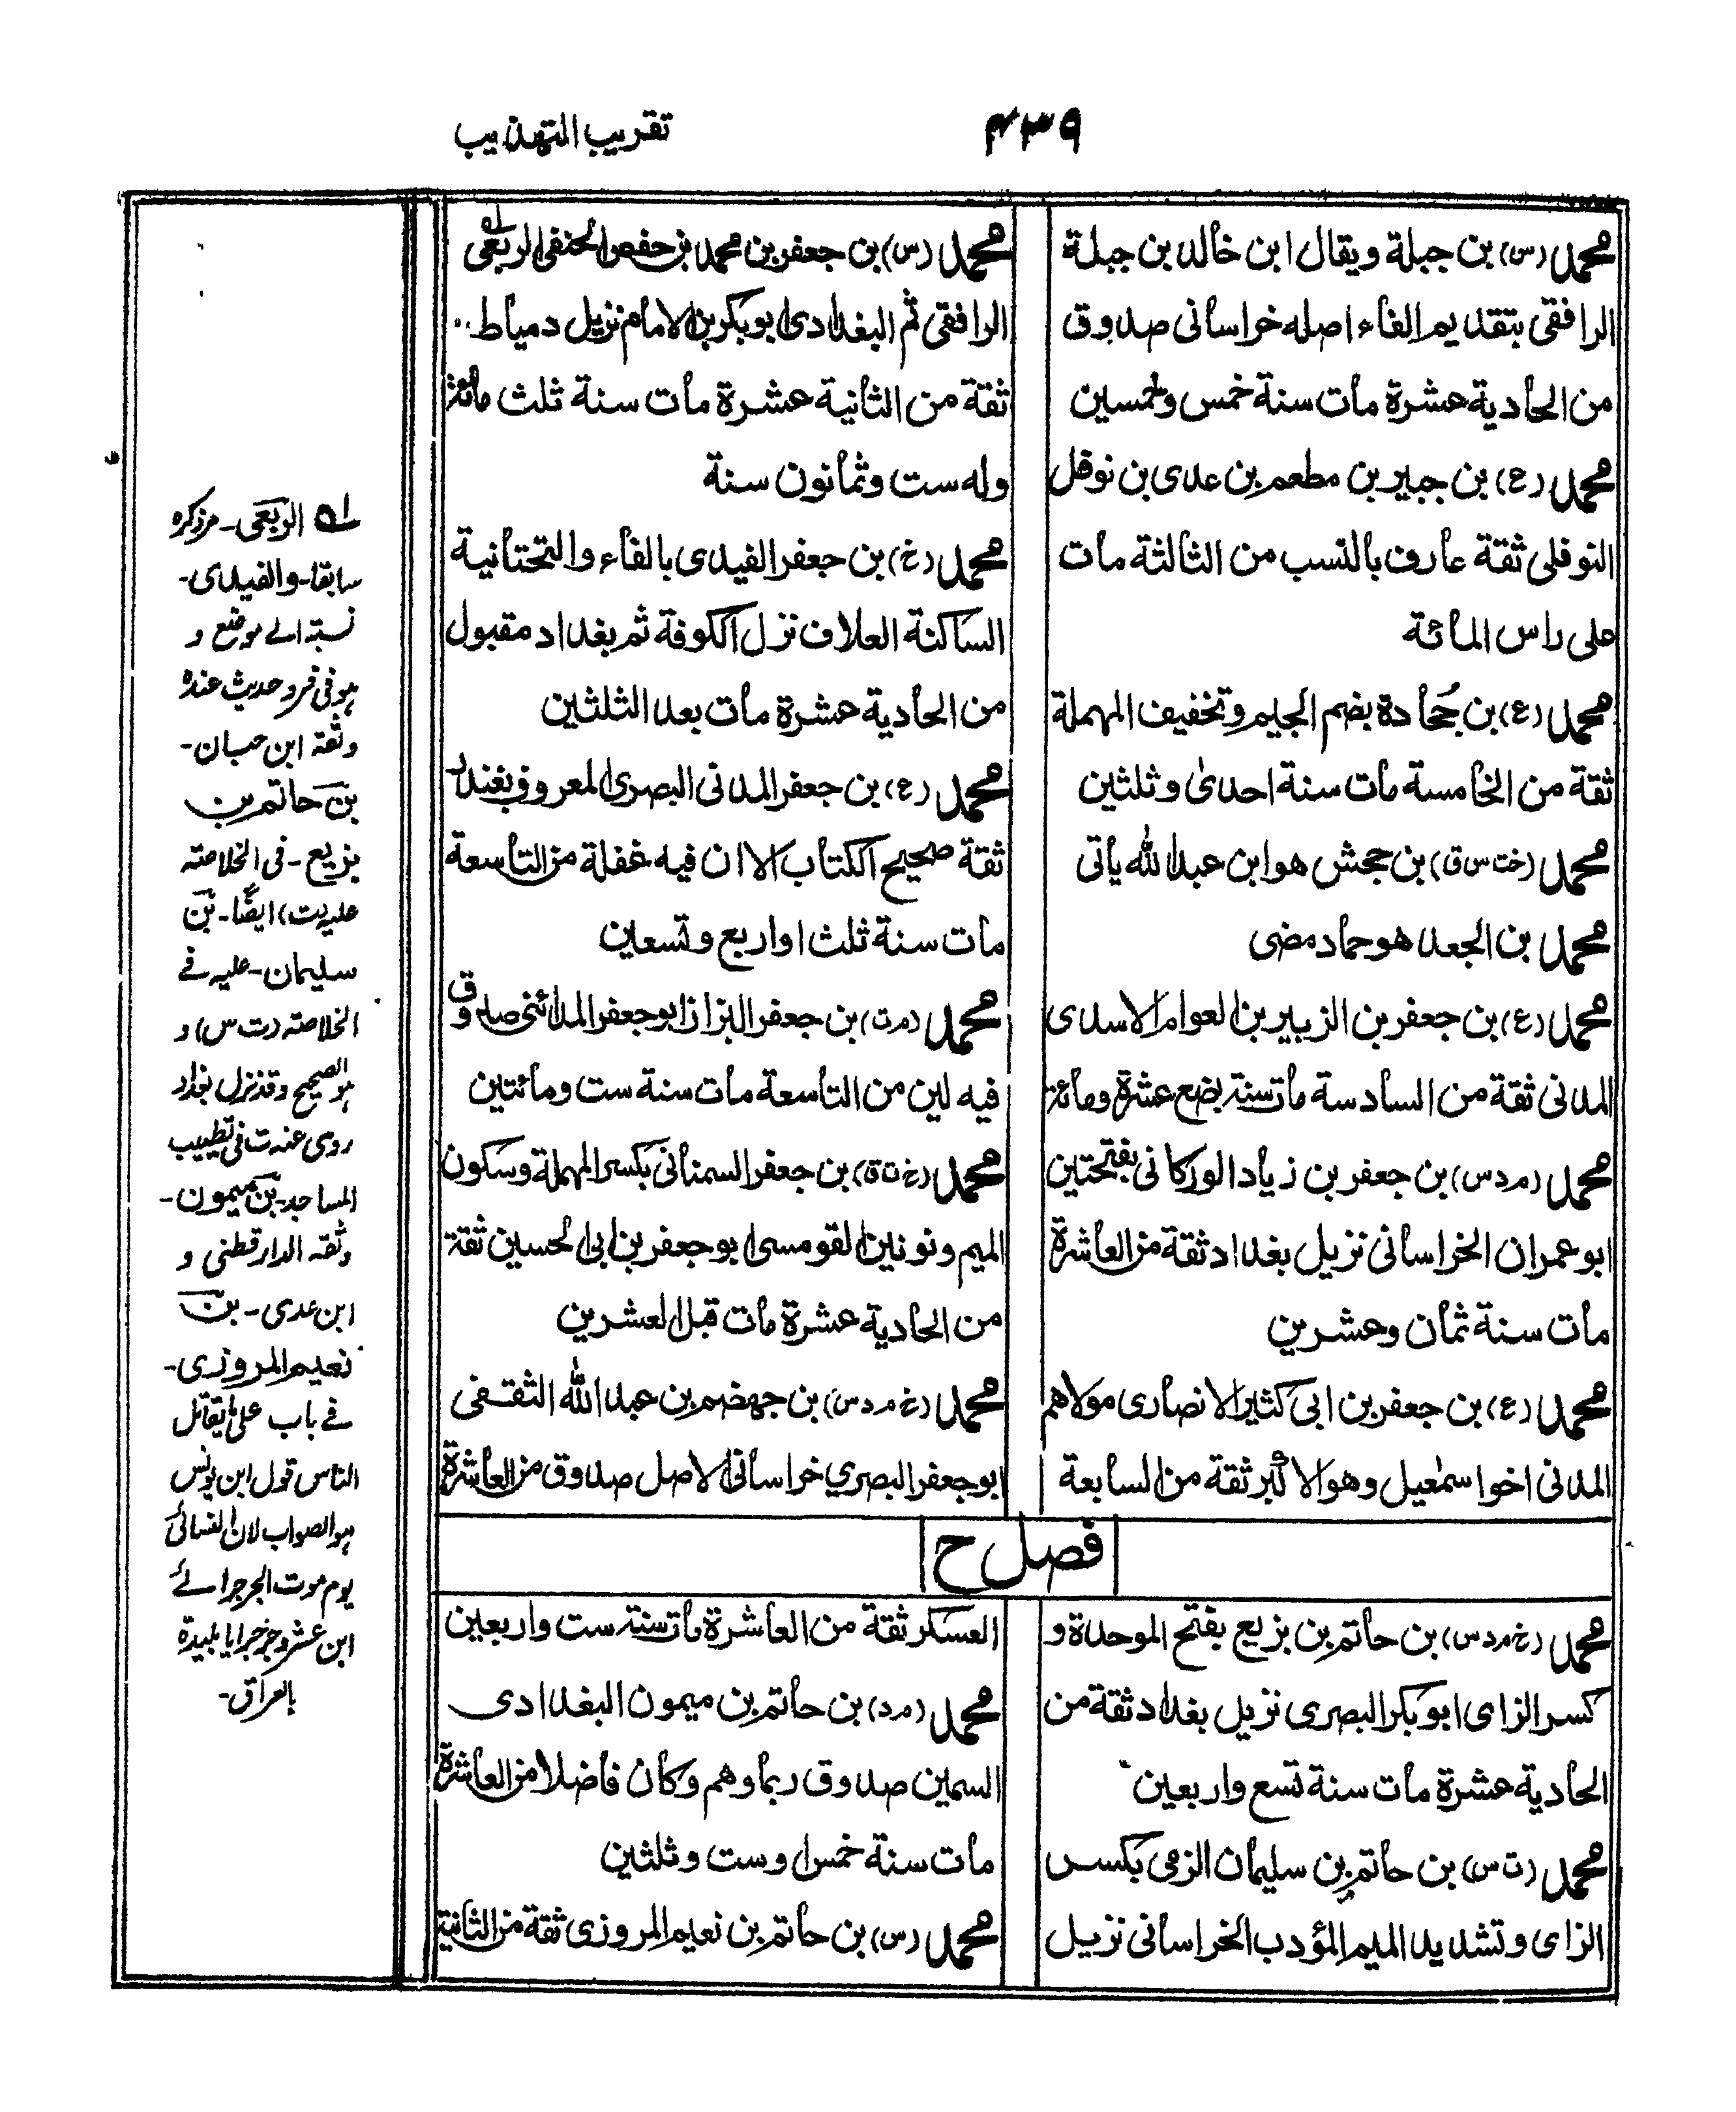 تقريب التهذيب
۴۳۹
محمد (س) بن جبلة ويقال ابن خالد بن جبلة
الرافقى بتقديم الفاء اصله خراسانى صدوق
من الحادية عشرة مات سنة خمس وخمسين
محمد (ع) بن جبير بن مطعم بن عدى بن نوفل
النوفلى ثقة عارف بالنسب من الثالثة مات
على راس المائة
محمد (ع) بن جُحادة بضم الجيم وتخفيف المهملة
ثقة من الخامسة مات سنة احدىٰ وثلثين
محمد (خت س ق) بن جحش هو ابن عبد الله ياتى
محمد بن الجعد هو حماد مضى
محمد (ع) بن جعفر بن الزبير بن العوام الاسدى
المدنى ثقة من السادسة مات سنة بضع عشرة ومائة
محمد (م د س) بن جعفر بن زياد الوركانى بفتحتين
ابو عمران الخراسانى نزيل بغداد ثقة من العاشرة
مات سنة ثمان وعشرين
محمد (ع) بن جعفر بن ابى كثير الانصارى مولاهم
المدنى اخو اسمٰعيل وهو الاكبر ثقة من السابعة
محمد (س) بن جعفر بن محمد بن حفص الحنفى الربعى ـه
الرافقى ثم البغدادى ابو بكر بن الامام نزيل دمياط
ثقة من الثانية عشرة مات سنة ثلث مائة
وله ست وثمانون سنة
محمد (خ) بن جعفر الفيدى بالفاء والتحتانية
الساكنة العلاف نزل الكوفة ثم بغداد مقبول
من الحادية عشرة مات بعد الثلثين
محمد (ع) بن جعفر المدنى البصرى المعروف بغندر
ثقة صحيح الكتاب الا ان فيه غفلة من التاسعة
مات سنة ثلث او اربع وتسعين
محمد (م ت) بن جعفر البزاز ابو جعفر المدائنى صدوق
فيه لين من التاسعة مات سنة ست ومائتين
محمد (خ ت ق) بن جعفر السمنانى بكسر المهملة وسكون
الميم ونونين القومسى ابو جعفر بن ابى الحسين ثقة
من الحادية عشرة مات قبل العشرين
محمد (خ م د س) بن جهضم بن عبد الله الثقفى
ابو جعفر البصري خراسانى الاصل صدوق من العاشرة
فصل ح
محمد (خ م د س) بن حاتم بن بزيع بفتح الموحدة و
كسر الزاى ابو بكر البصرى نزيل بغداد ثقة من
الحادية عشرة مات سنة تسع واربعين
محمد (ت س) بن حاتم بن سليمان الزمى بكسر
الزاى وتشديد الميم المؤدب الخراسانى نزيل
العسكر ثقة من العاشرة مات سنة ست واربعين
محمد (م د) بن حاتم بن ميمون البغدادى
السمين صدوق ربما وهم وكان فاضلا من العاشرة
مات سنة خمس او ست وثلثين
محمد (س) بن حاتم بن نعيم المروزى ثقة من الثانية
ـه الربعى ـ مر ذكره
سابقا ـ والفيدى ـ
نسبة الى موضع و
هو فى فرو حديث عنده
وثقه ابن حبان ـ
بن حاتم بن
بزيع ـ فى الخلاصة
عليه (ت) ايضًا ـ بن
سليمان ـ عليه فى
الخلاصة (ت س) و
هو الصحيح وقد نزل بغداد
روى عنه ت فى تطييب
المساجد ـ بن ميمون ـ
وثقه الدارقطنى و
ابن عدى ـ بن
نعيم المروزى ـ
فى باب على ما يقاتل
الناس قول ابن يونس
هو الصواب لان النسائى
يوم موت الجرجرائى
ابن عشر وجرجرايا بليدة
بالعراق ـ